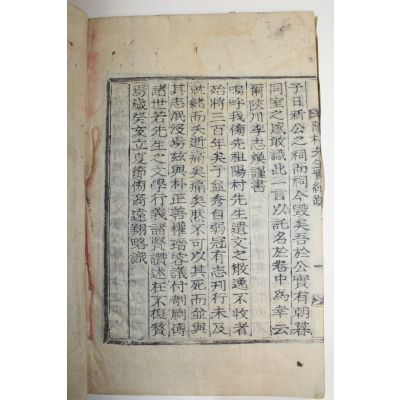 予日新公之祠而祠今毁矣吾於公實有朝暮
同室之感敢識此一言以託名於卷中為幸云
爾陜川李志𤍠謹書
嗚呼我傍先祖陽村先生遺文之散逸不收者
殆將三百年矣予益秀自弱冠有志刊行未及
就緒而夭逝痛矣痛矣然不可以其死而並與
其志泯沒焉玆與朴正善權瑎容議付剞劂傳
諸世若先生之文學行義諸賢讚述在不復贅
焉歲癸亥立夏節侑裔遠翔略識